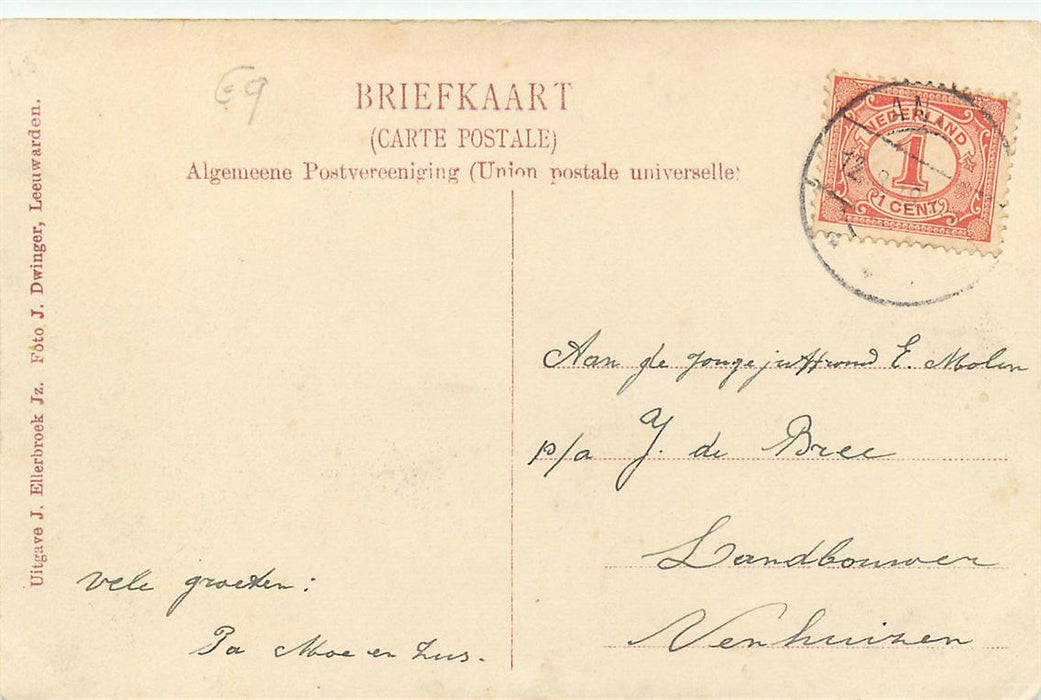 BRIEFKAART
(CARTE POSTALE)
Algemeene Postvereeniging (Union postale universelle)
NEDERLAND
1
1 CENT
Uitgave J. Ellerbroek Jz. Foto J. Dwinger, Leeuwarden.
Aan de Jongejuffrouw E. Molen
p/a J. de Bree
Landbouwer
Venhuizen
Vele groeten:
Pa Moe en Zus.